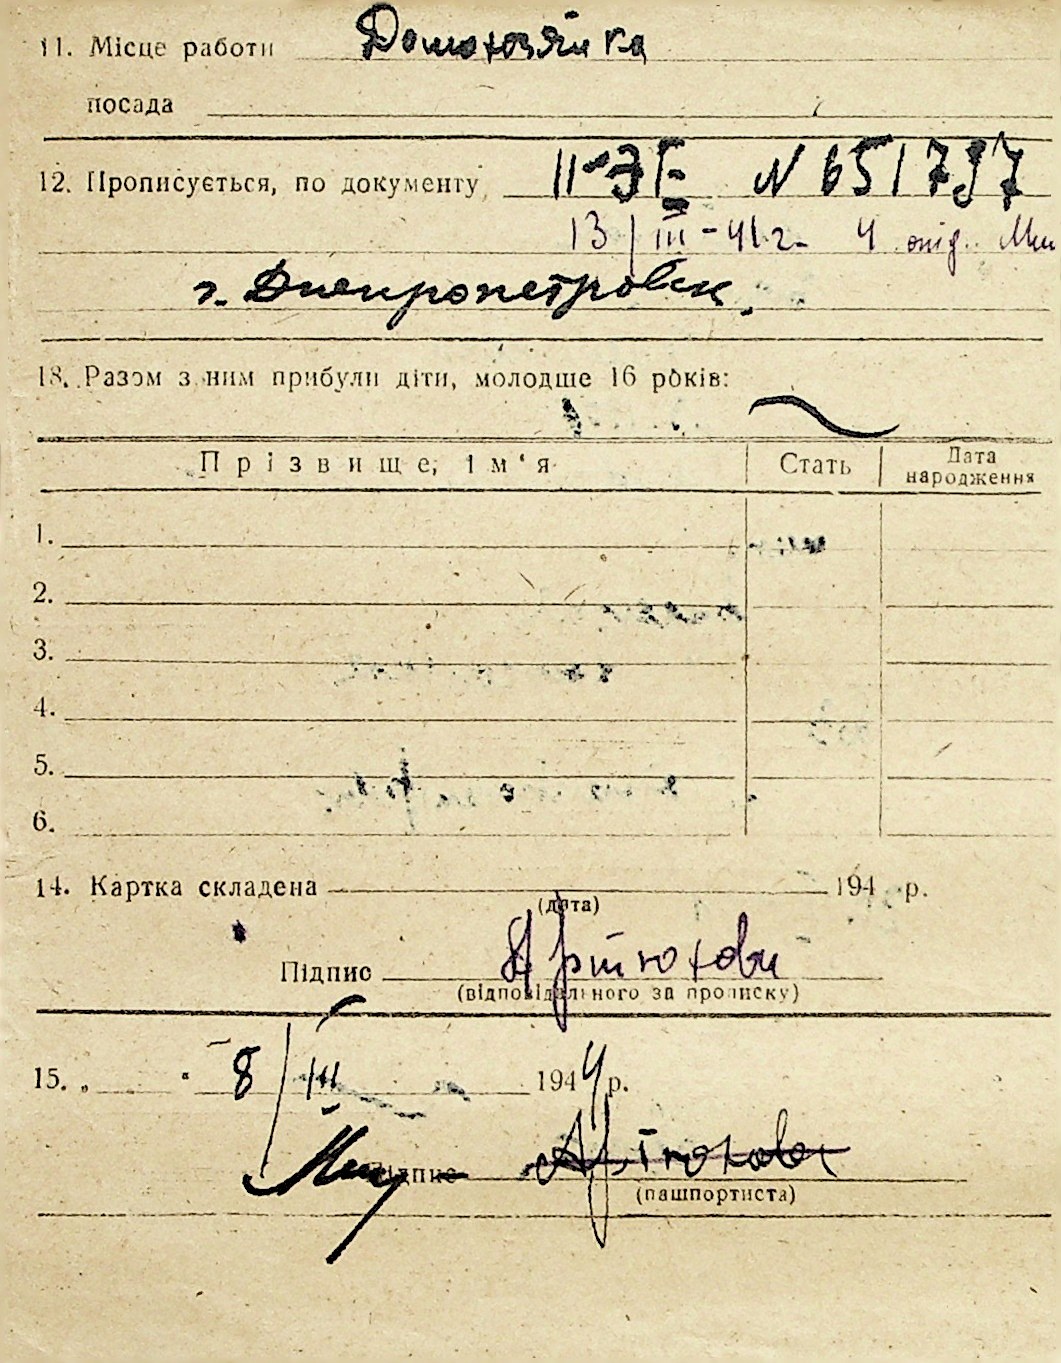 11. Місце работи Домохозяйка
посада
12. Прописується, по документу II-ЭЕ N 651797
13/III-41 г. 4 отд. Ми
г. Днепропетровск.
13. Разом з ним прибули діти, молодше 16 років:
Прізвище, ім'я Стать Дата народження
1.
2.
3.
4.
5.
6.
14. Картка складена 194 р.
(дата)
Підпис
(відповідального за прописку)
15. „ " 8/III 1944 р.
Підпис
(пашпортиста)